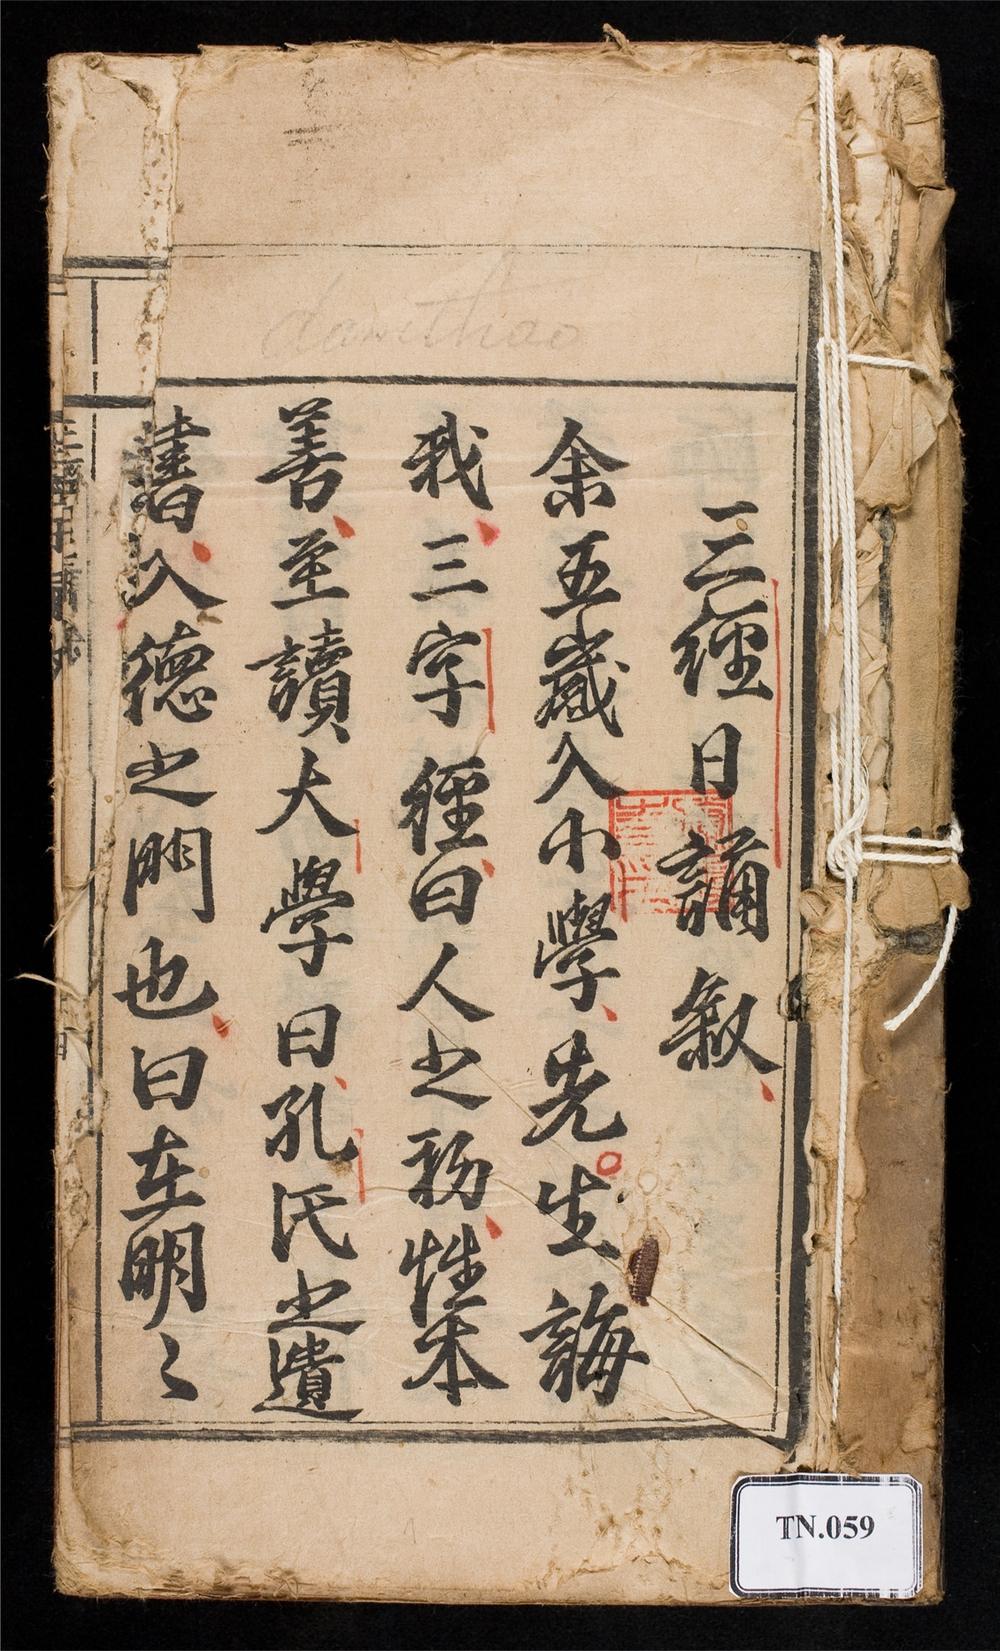 三經日誦叙
余五歲入小學先生誨
我三字經曰人之初性本
善至讀大學曰孔氏之遺
書入德之門也曰在明〻
TN.059